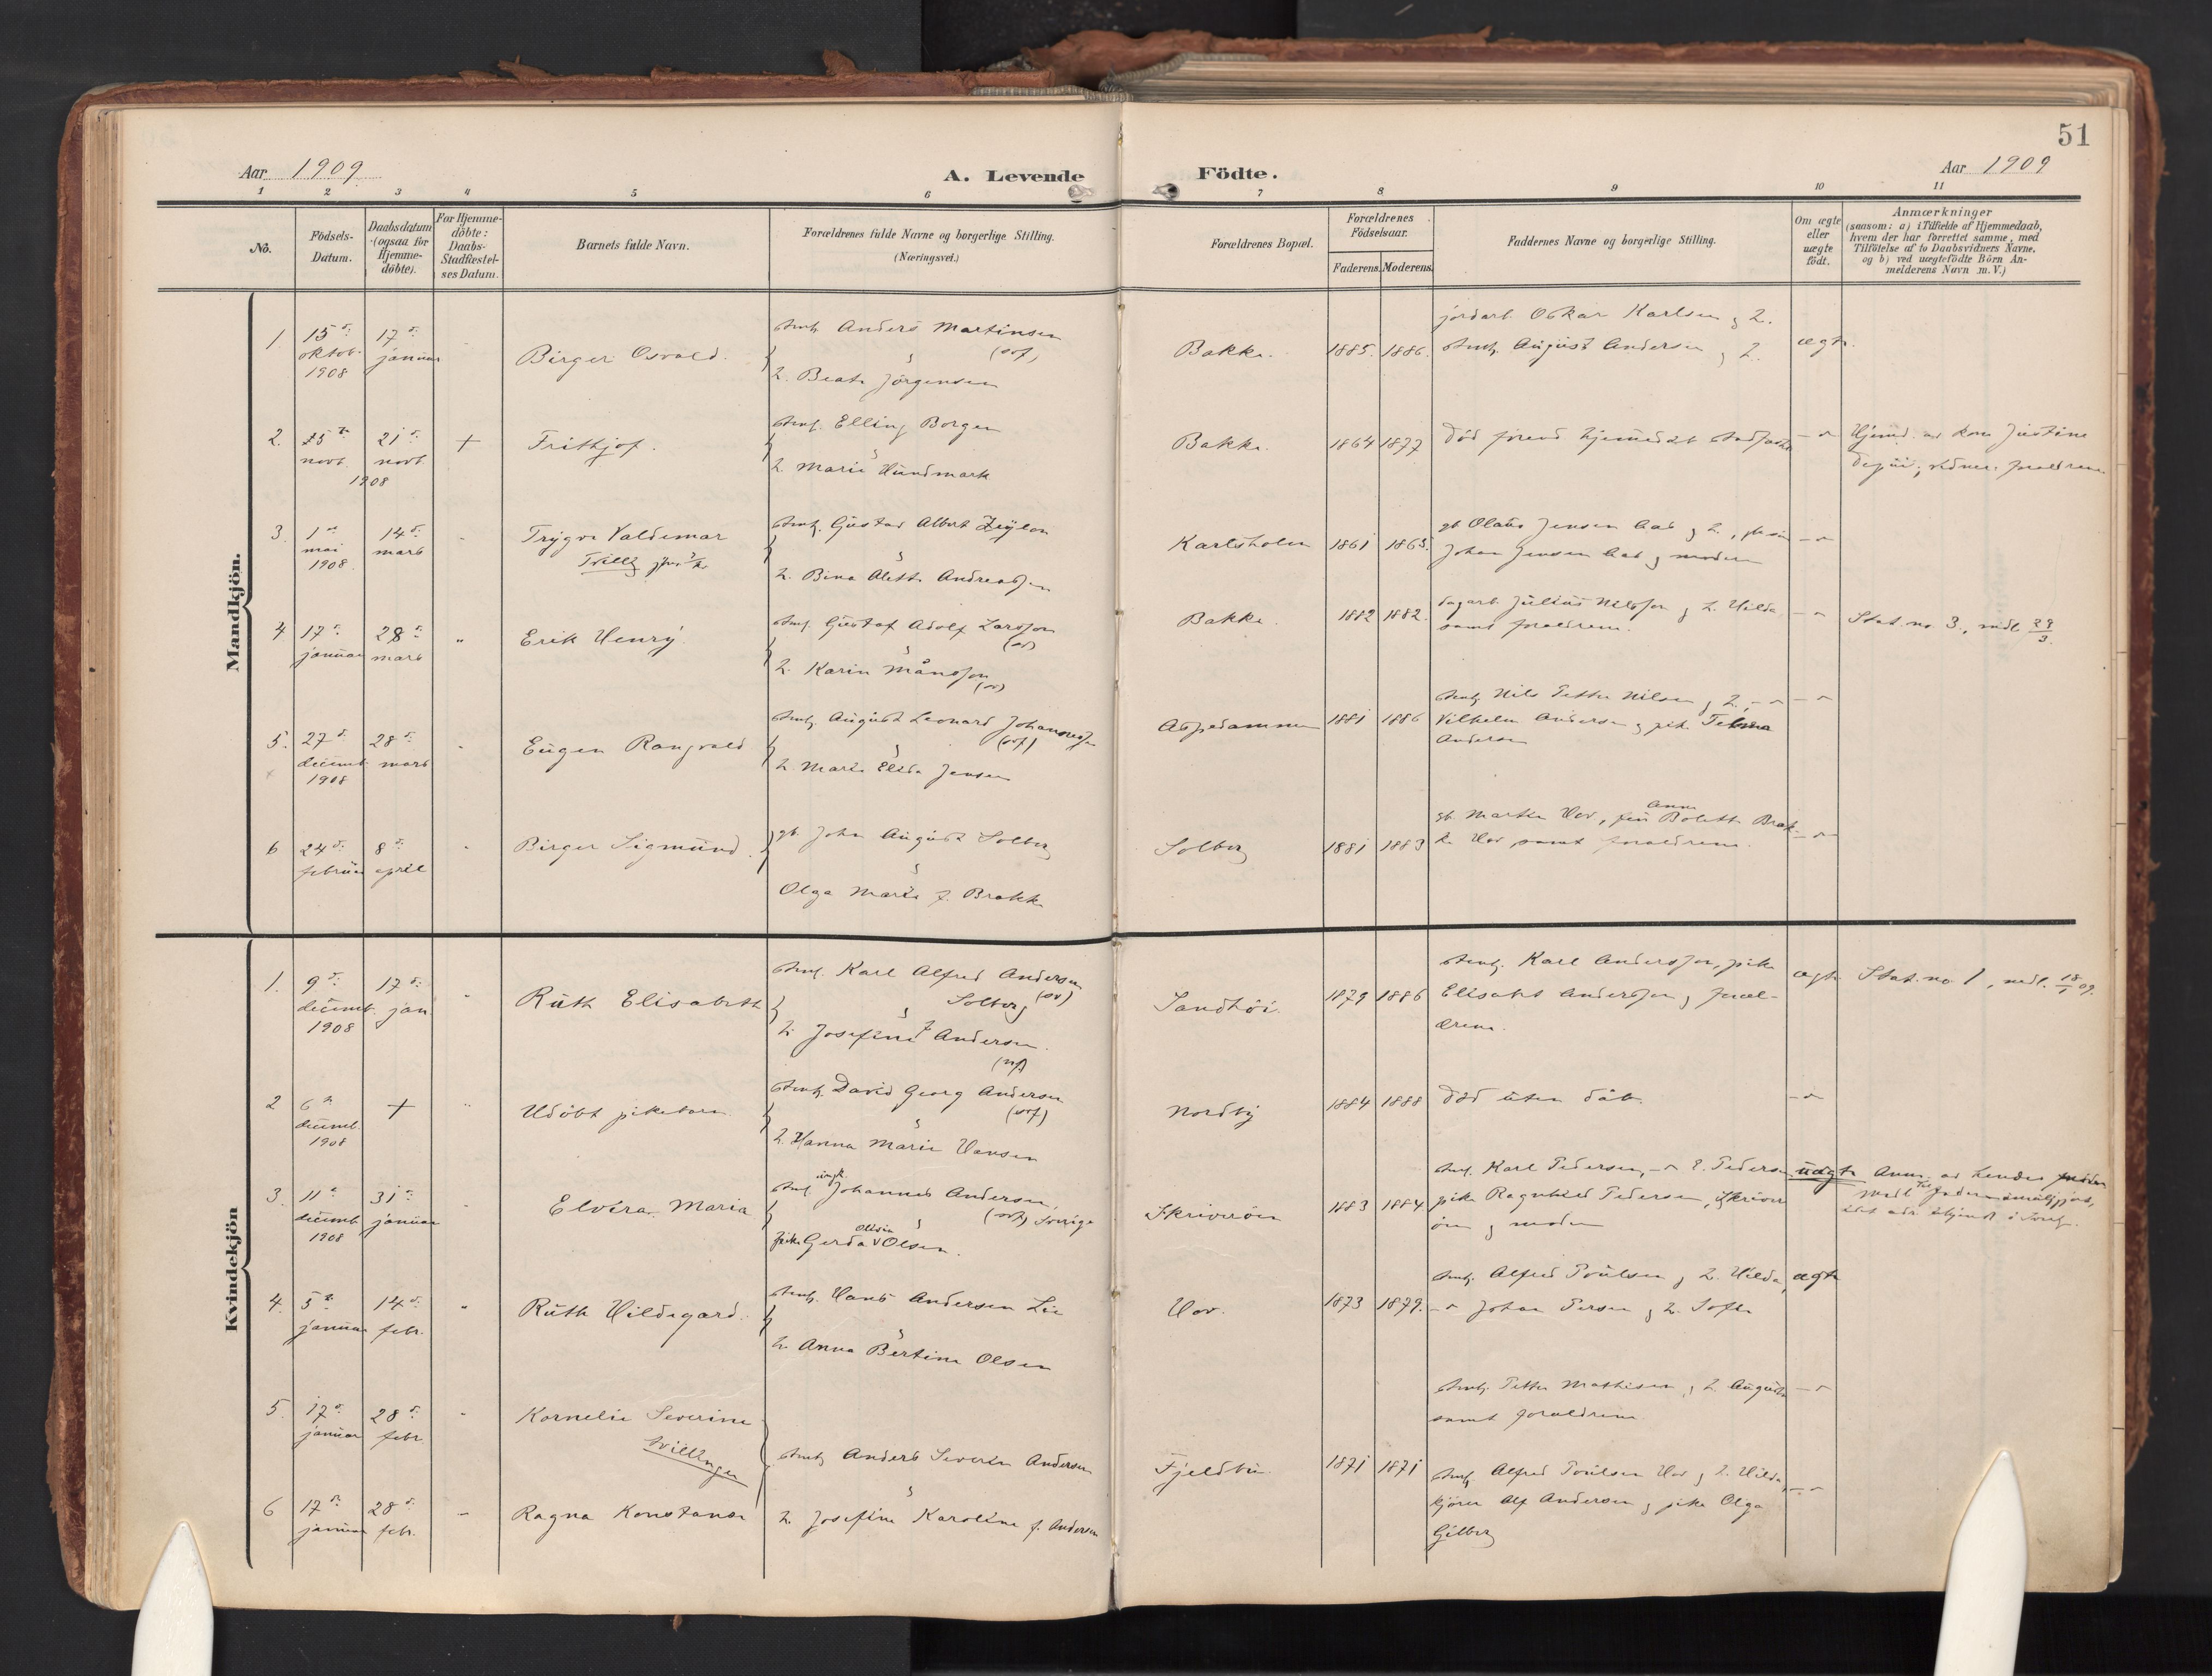 51
Aar 1909
A. Levende
Födte.
Aar 1909
1 2 3 4 5 6 7 8 9 10 11
No.
Födsels-
Datum.
Daabsdatum
(ogsaa for
Hjemme-
döbte).
For Hjemme-
döbte:
Daabs-
Stadfæstel-
ses Datum.
Barnets fulde Navn.
Forældrenes fulde Navne og borgerlige Stilling.
(Næringsvei.)
Forældrenes Bopæl.
Forældrenes
Födselsaar.
Faderens. Moderens.
Faddernes Navne og borgerlige Stilling.
Om ægte
eller
uægte
födt.
Anmærkninger
(saasom: a) i Tilfælde af Hjemmedaab,
hvem der har forrettet samme, med
Tilföielse af to Daabsvidners Navne.
og b) ved uægtefödte Börn An-
melderens Navn m. V.)
Mandkjön.
1. 15 oktob. 1908
17 januar
Birger Osvald.
Anders Martinsen
h. Beate Jörgensen
Bakke. 1885. 1886.
jordarb. Oskar Karlsen & h.
August Andersen & h.
ægte.
2. 25 novb. 1908
21 novb.
+
Frithjof.
Elling Borgen
h. Marie Hundmark
Bakke. 1864 1877
død forend hjemmedåb
Hjemd. av kone Justine
vidner: forældrene
3. 1 mai 1908
14 mars
Trygve Valdemar
Gustav Albert
h. Bina Alette Andreassen
Karlsholm 1861 1865.
gb. Olaus Jensen & h.,
Johan Jensen & moderen
4 17 januar
28 mars
Erik Henry
Gustaf Adolf Larsson
h. Karin Månsson
Bakke. 1882 1882.
dagarb. Julius Nilsson & h. Hilda
samt forældrene.
Stat. no. 3, medl. 29/3.
5. 27 decemb. 1908
28 mars
Eugen Rangvald
August Leonard Johannessen
h. Marie Elida Jensen
Aspedammen 1881 1886
Nils Petter Nilsen & h.,
Vilhelm Andersen & pike
Andersen
6 24 februar
8 april
Birger Sigmund
gb. John August Solberg
Olga Marie f. Brække
Solberg 1881 1883
gb. Martin Hov, Anne Bolette
Hov samt forældrene.
Kvindekjön
1. 9 decemb. 1908
17 jan.
Ruth Elisabeth
Karl Alfred Andersen
Solberg
h. Josefine f. Andersen.
Sandhöi. 1879 1886
Karl Andersson, pike
Elisabet Andersson & foræl-
drene.
ægte Stat. no. 1, medl. 18/1 09.
2 6 decemb. 1908
+
Udöbt pikebarn.
David Georg Andersen
h. Hanna Marie Hansen
Nordby 1884 1888
död uten dåb.
3 11 decemb. 1908
31 januar
Elvira Maria
ungk.
Johannes Andersen,
Sverige
pike Gerda Olivia Olsen.
Skriverøen 1883 1884
Karl Pedersen, E. Pedersen
pike Ragnhild Pedersen, Skriver
øen & moderen
uægte
4. 5 januar
14 febr.
Ruth Hildegard.
Hans Andersen Lie
h. Anna Bertine Olsen
Hov. 1873 1879.
Alfred Poulsen & h. Hilda,
Johan Persen & h. Sofie
ægte
5. 17 januar
28 febr.
Kornelie Severine
tvillinger
Anders Severin Andersen
h. Josefine Karoline f. Andersen
Fjeldbu 1871 1871
Petter Mathisen & h. Augusta
samt forældrene
6 17 januar
28 febr.
Ragna Konstanse
Alfred Poulsen Hov & h. Hilda,
kjører Alf Andersen & pike Olga
Gilberg